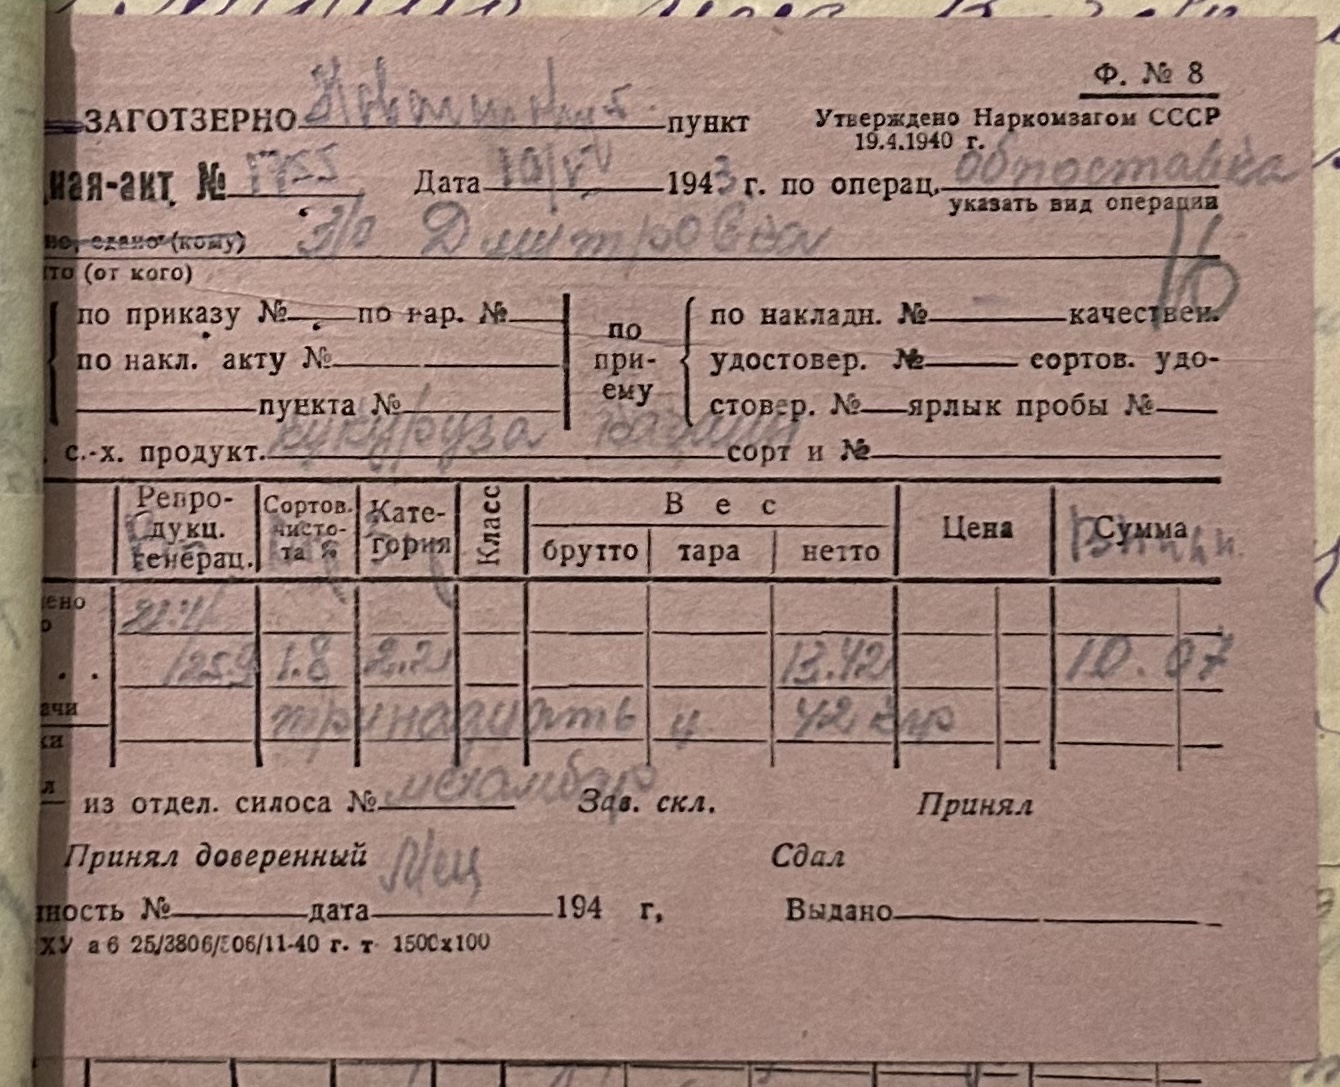 Ф. № 8
ЗАГОТЗЕРНО пункт Утверждено Наркомзагом СССР
19.4.1940 г.
ная-акт, № 1755 Дата 194 3 г. по операц. обпоставка
указать вид операции
но, сдано (кому) З/о Дмитровка
то (от кого) 16
по приказу № по нар. № по при-ему по накладн. № качествен.
по накл. акту № удостовер. № сортов. удо-
пункта № стовер. № ярлык пробы №
с.-х. продукт. кукуруза сорт и №
Репро-дукц. Генерац. Сортов. чисто-та % Кате-гория Класс Вес Цена Сумма
брутто тара нетто
ено
1259 1.8 2.2 13.42 10.07
ачи тринадцать ц 42 кгр
ки
л из отдел. силоса № Зав. скл. Принял
Принял доверенный Сдал
ность № дата 194 г, Выдано
ХУ а6 25/3806/506/11-40 г. т 1500х100